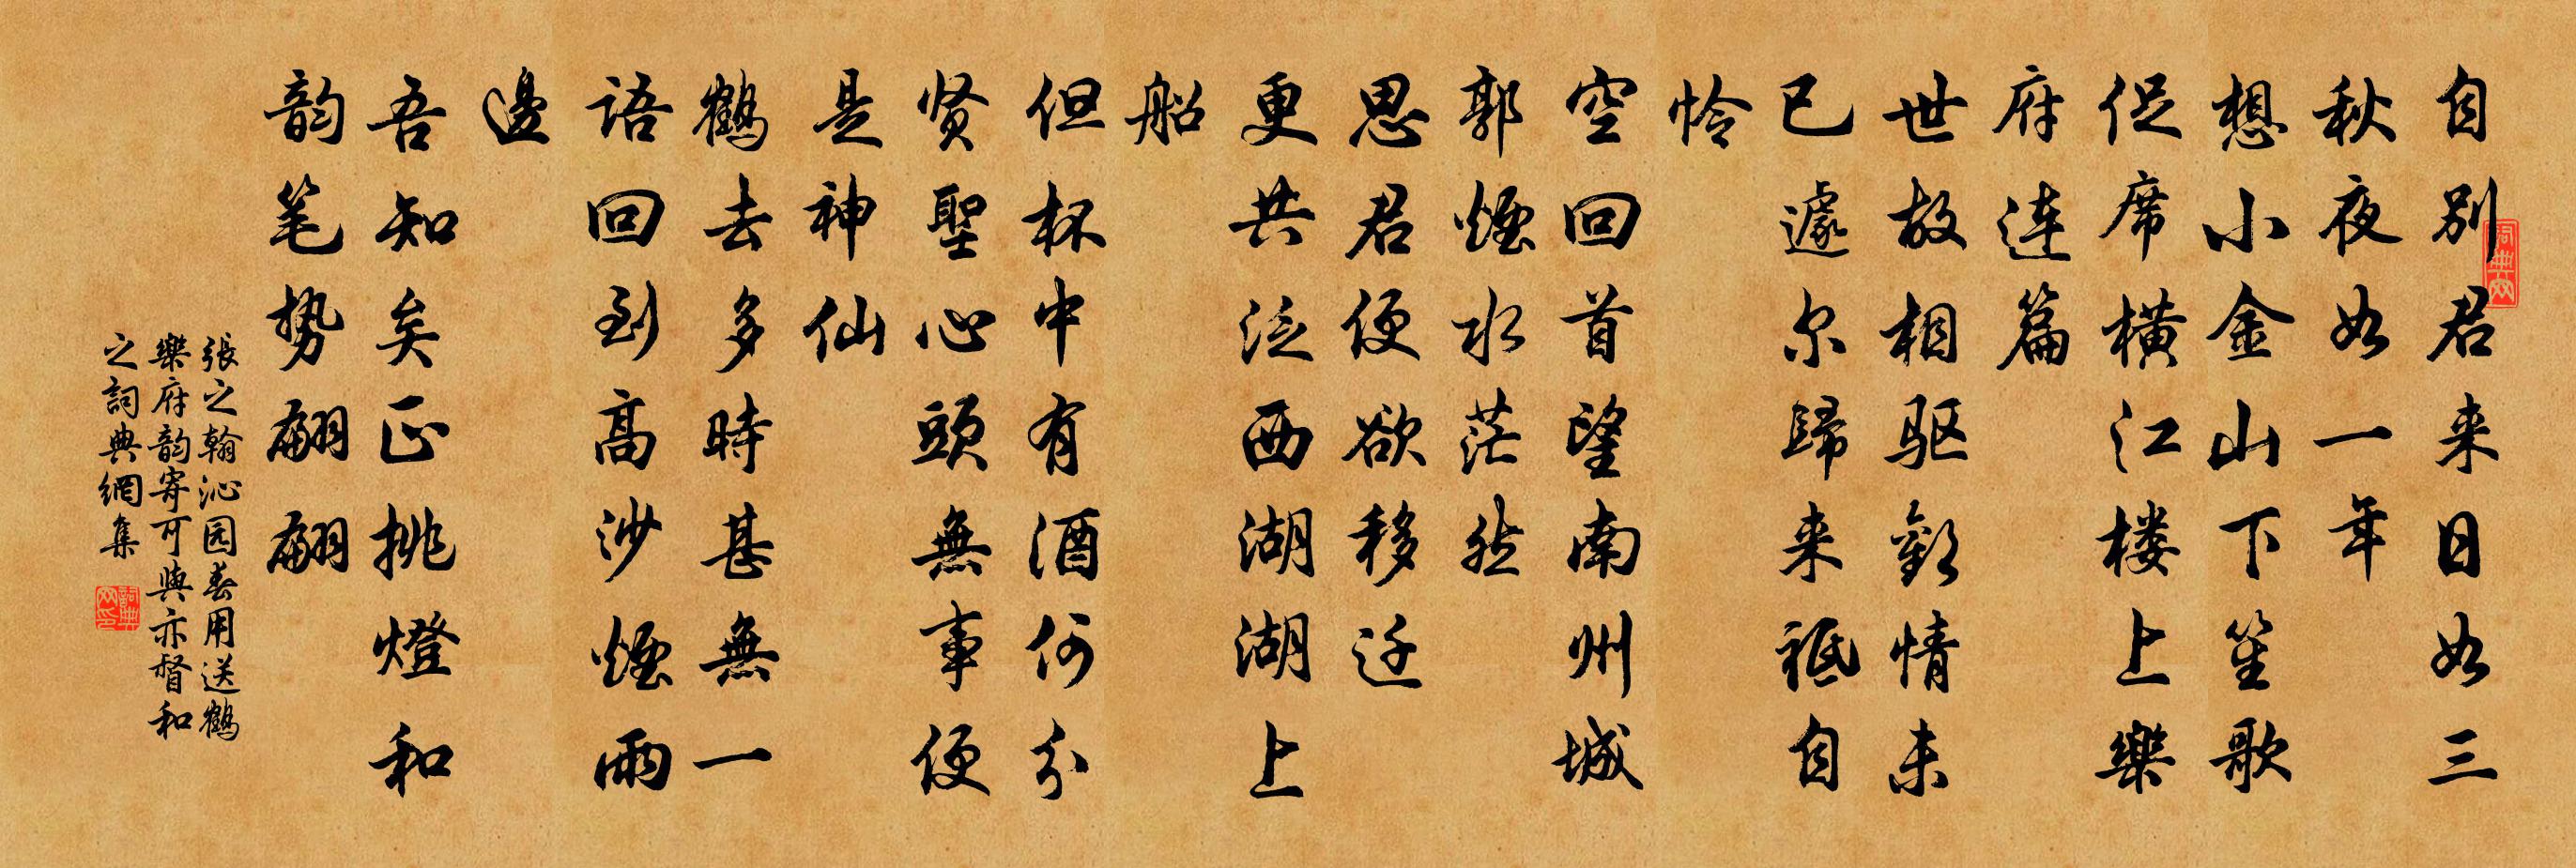 自别君来日如三
秋夜如一年
想小金山下笙歌
促席横江楼上樂
府连篇
世故相驱歡情未
已遽尔歸来祗自
怜
空回首望南州城
郭煙水茫然
思君便欲移迁
更共泛西湖湖上
船
但杯中有酒何分
贤聖心頭無事便
是神仙
鶴去多時甚無一
语回到高沙煙雨
邊
吾知矣正挑燈和
韵笔势翩翩
張之翰沁园春用送鶴
樂府韵寄可與亦督和
之詞典網集
詞典网